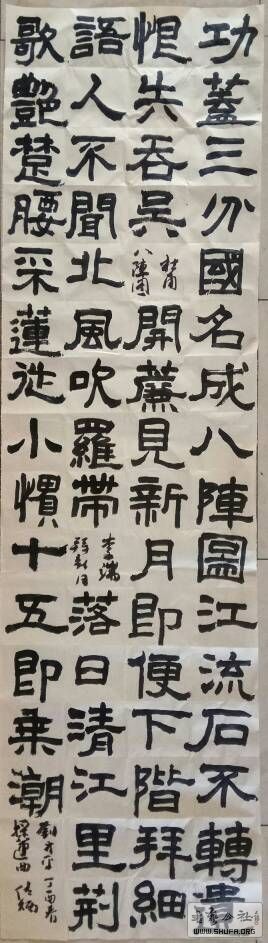 功蓋三分國名成八陣圖江流石不轉遺
恨失吞吳 杜甫 八陣圖 開簾見新月即便下階拜細
語人不聞北風吹羅帶 李端 拜新月 落日清江里荆
歌艷楚腰采蓮從小慣十五即乘潮 劉方平 丁酉春 採蓮曲
WWW.SHUFA.ORG